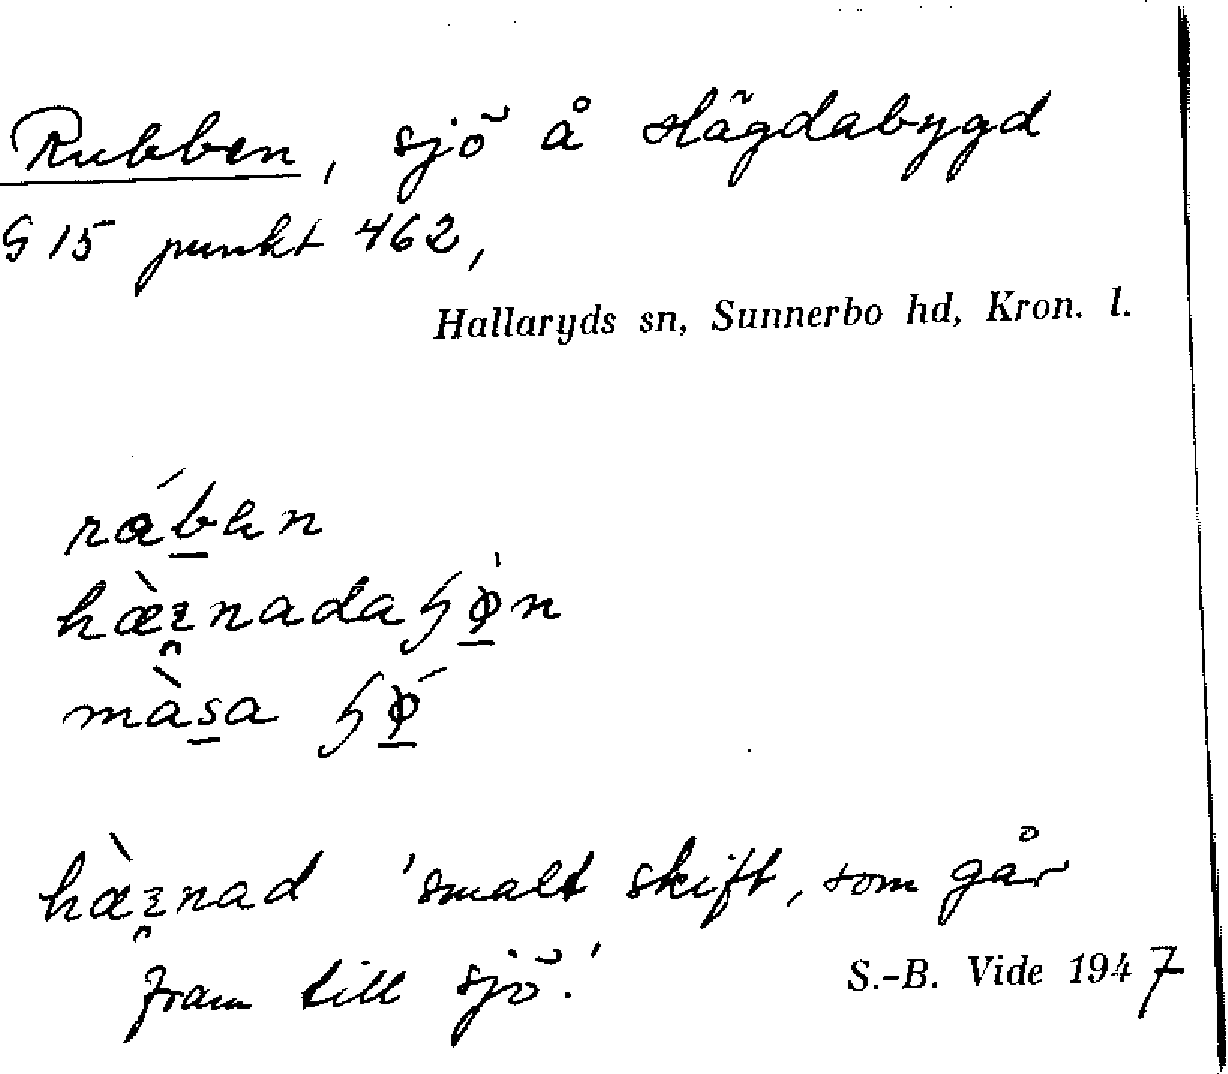 Rubben, sjö å Hägdabygd
§ 15 punkt 462,
Hallaryds sn, Sunnerbo hd, Kron. l.
hærnad 'smalt skift, som går
fram till sjö.'
S.-B. Vide 1947